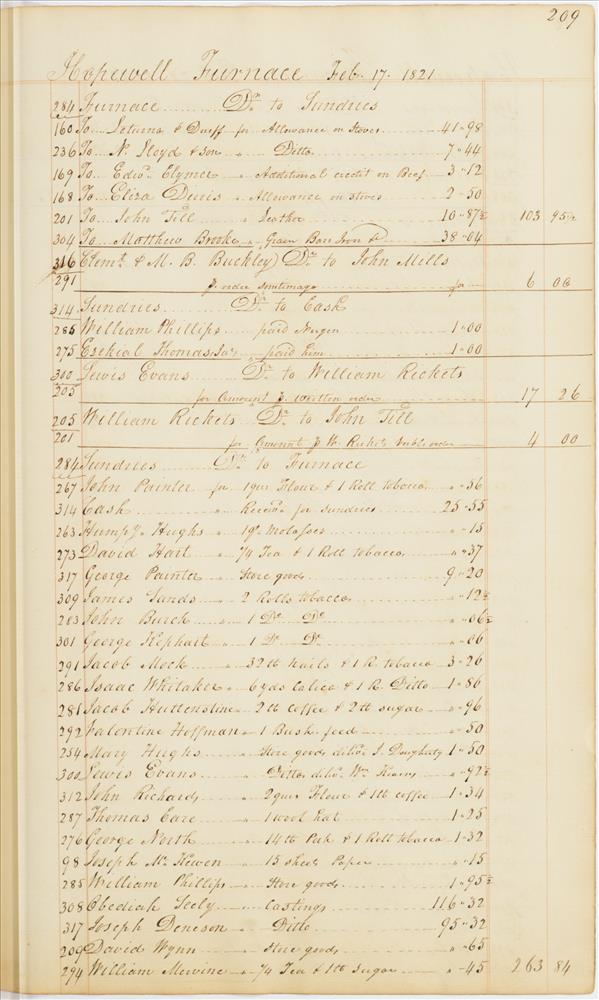 209
Hopewell Furnace Feb. 17. 1821
284 Furnace Dr to Sundries
160 To Leturna & Duiff for Allowance on Stoves 41"98
236 To N. Lloyd & Son " Ditto 7"44
169 To Edwd. Clymer " Additional credit on Beef 3"12
168 To Eliza Davis " Allowance on stoves 2"50
201 To John Till " Leather 10"87½ 103 95½
304 To Matthew Brooke " Green Bar Iron &c 38"04
316 Clemt. & M. B. Buckley Dr to John Mills
291 order for 6 00
314 Sundries Dr to Cash
285 William Phillips paid 1"00
275 Ezekial Thomas Jnr " paid him 1"00
300 Lewis Evans Dr to William Rickets
205 for Amount written order 17 26
205 William Rickets Dr to John Till
201 for Amount W. Rickets order 4 00
284 Sundries Dr to Furnace
267 John Painter for 1 qur Flour & 1 Roll tobacco " "56
314 Cash " Recevd. for sundries 25"55
263 Humpy. Hughs " 1 qt Molasses " "15
273 David Hart " ¼ Tea & 1 Roll tobacco " "37
317 George Painter " Store goods 9"20
309 James Sands " 2 Rolls tobacco " "12½
203 John Burck " 1 Do Do " "06½
301 George Kephart " 1 Do Do " "06
291 Jacob Mock " 32 lb nails & 1 R. tobacco 3"26
286 Isaac Whitaker " 6 yds Calico & 1 R. Ditto 1"86
281 Jacob Huttensline " 2 lb coffee & 2 lb sugar " "96
292 Valentine Hoffman " 1 Bush. feed " "50
254 Mary Hughs " Store goods delivd. J. Dougherty 1"50
300 Lewis Evans " Ditto delivd. Wm 	" "92½
312 John Richards " 2 qurs Flour & 1 lb coffee 1"34
287 Thomas Care " 1 wool hat 1"25
276 George North " 14 lb Pork & 1 Roll tobacco 1"32
98 Joseph McKewen " 15 sheets Paper " "15
285 William Phillips " Store goods 1"95½
308 Obediah Seely " Castings 116"32
317 Joseph Deneson " Ditto 95"32
209 David Wynn " Store goods " "65
294 William Mervine " ¼ Tea & 1 lb Sugar " "45 263 84